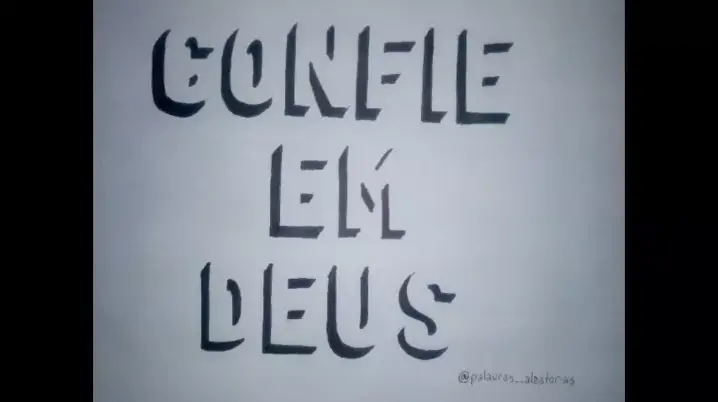 CONFIE
EM
DEUS
@palavras__aleatorias